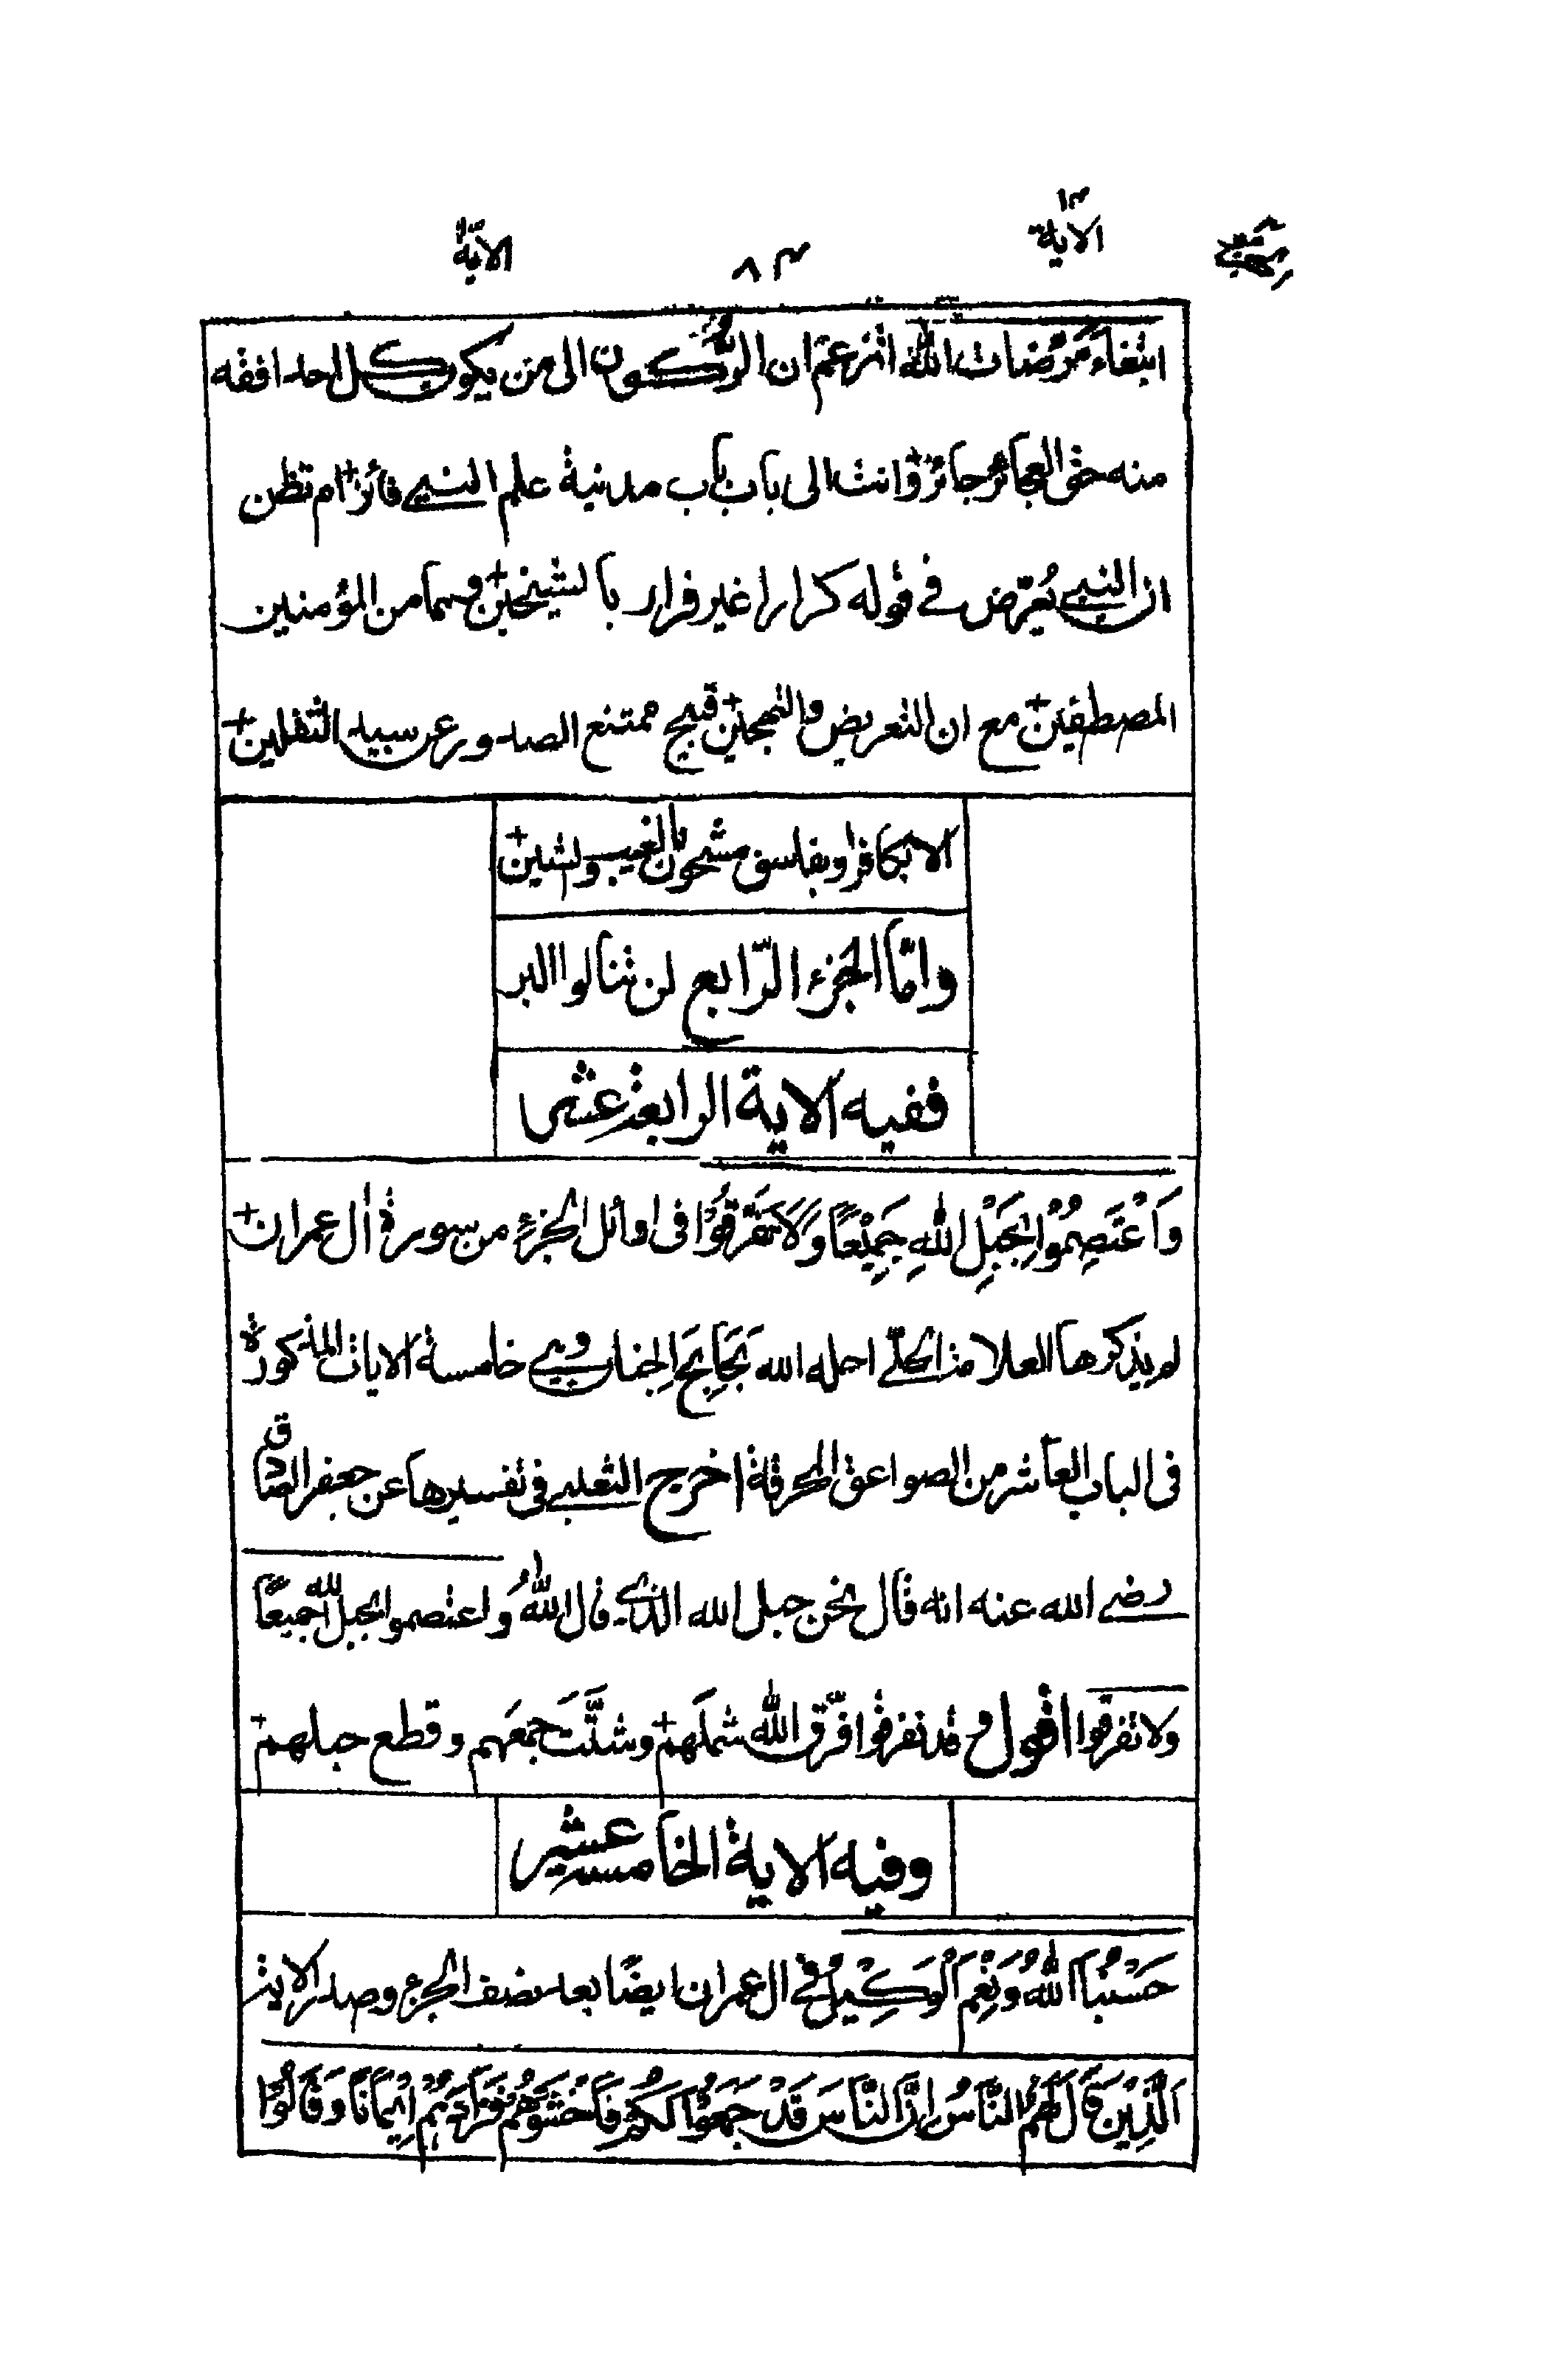 الآية ١٤
٨٤
الآية
ابتغاء مرضات الله اتزعم ان الركون الى من يكون كل احد افقه
منه حتى العجائز جائز وانت الى باب باب مدينة علم النبي فائز ام تظن
ان النبي يُعرّض في قوله كرارا غير فرار بالشيخين وهما من المؤمنين
المصطفين مع ان التعريض والتهجين قبيح ممتنع الصدور عن سيد الثقلين
الا بكافر او بفاسق مشحون بالغيب والشين
وامّا الجزء الرّابع لن تنالوا البر
ففيه الاية الرابعة عشر
وَاعْتَصِمُوْا بِحَبْلِ اللهِ جَمِيْعًا وَلَا تَفَرَّقُوْا في اوائل الجزء من سورة اٰل عمران
لم يذكرها العلامة الحلّي احله الله بَحَابِحَ الجنان وهي خامسة الايات المذكورة
في الباب العاشر من الصواعق المحرقة اخرج الثعلبي في تفسيرها عن جعفر الصادق
رضي الله عنه انه قال نحن حبل الله الذي قال اللهُ واعتصموا بحبل الله جميعًا
ولا تفرقوا اقول وقد تفرقوا فرّق الله شملَهم وشتَّتَ جمعَهم وقطع حبلهم
وفيه الاية الخامسة عشر
حَسْبُنَا اللهُ وَنِعْمَ الْوَكِيْلُ في ال عمران ايضًا بعد نصف الجزء وصدر الاية
اَلَّذِيْنَ قَالَ لَهُمُ النَّاسُ اِنَّ النَّاسَ قَدْ جَمَعُوْا لَكُمْ فَاخْشَوْهُمْ فَزَادَهُمْ اِيْمَانًا وَقَالُوْا